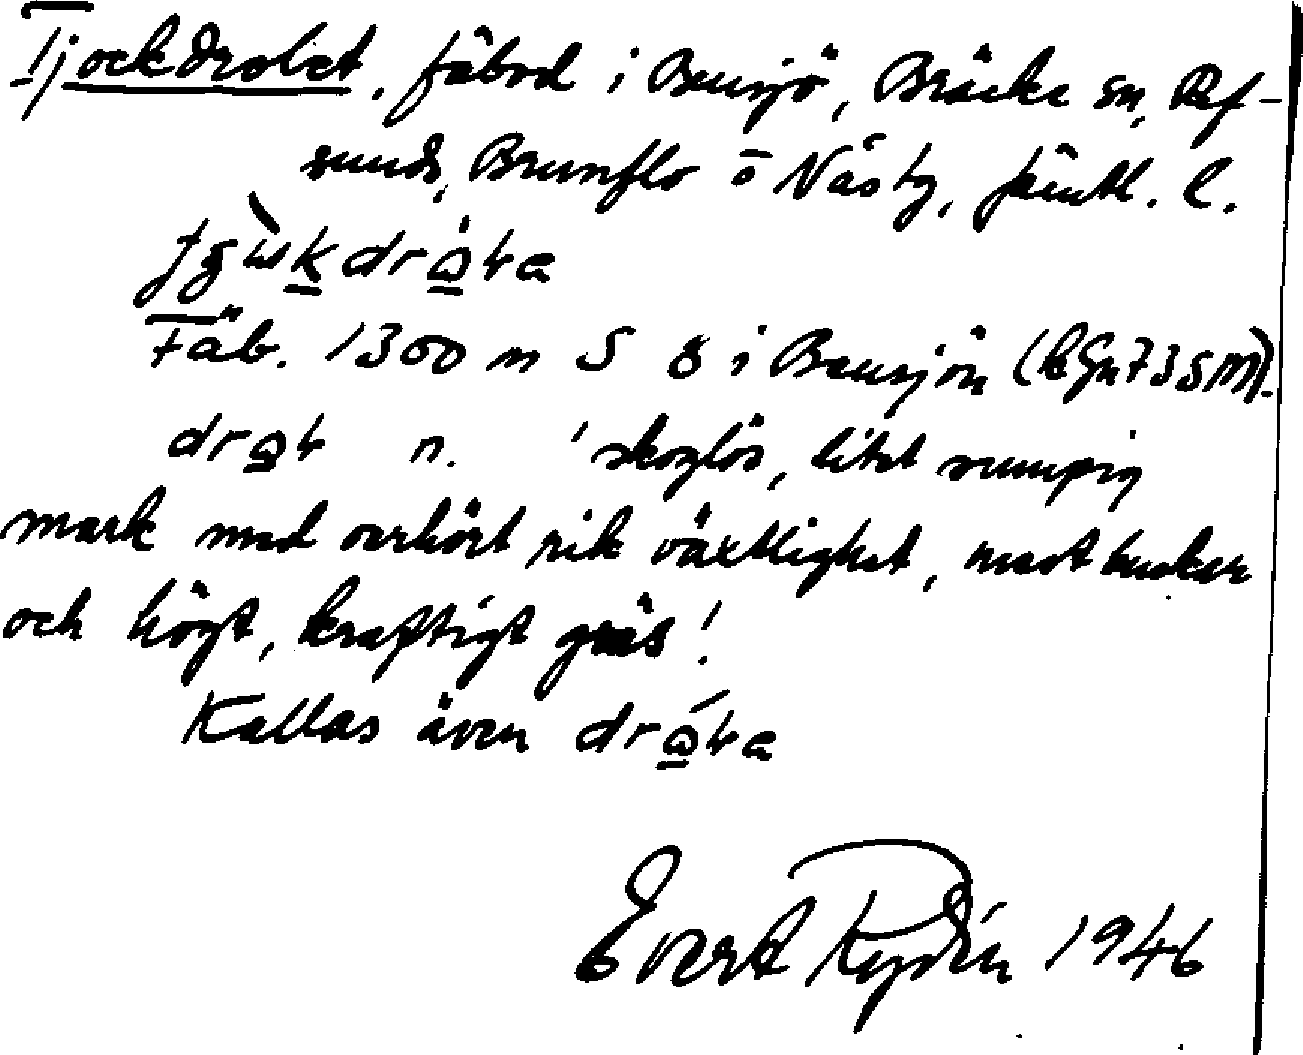 Tjockdrolet, fäbod i Bensjö, Bräcke sn, Ref-
sunds, Brunflo o Näs tg, Jämtl. l.
Fäb. 1300 m S ö i Bensjön (kGn73SM).
n. 'skoglös, litet sumpig
mark med oerhört rik växtlighet, mest buskar
och högt, kraftigt gräs!
Kallas även
Evert Rydén 1946